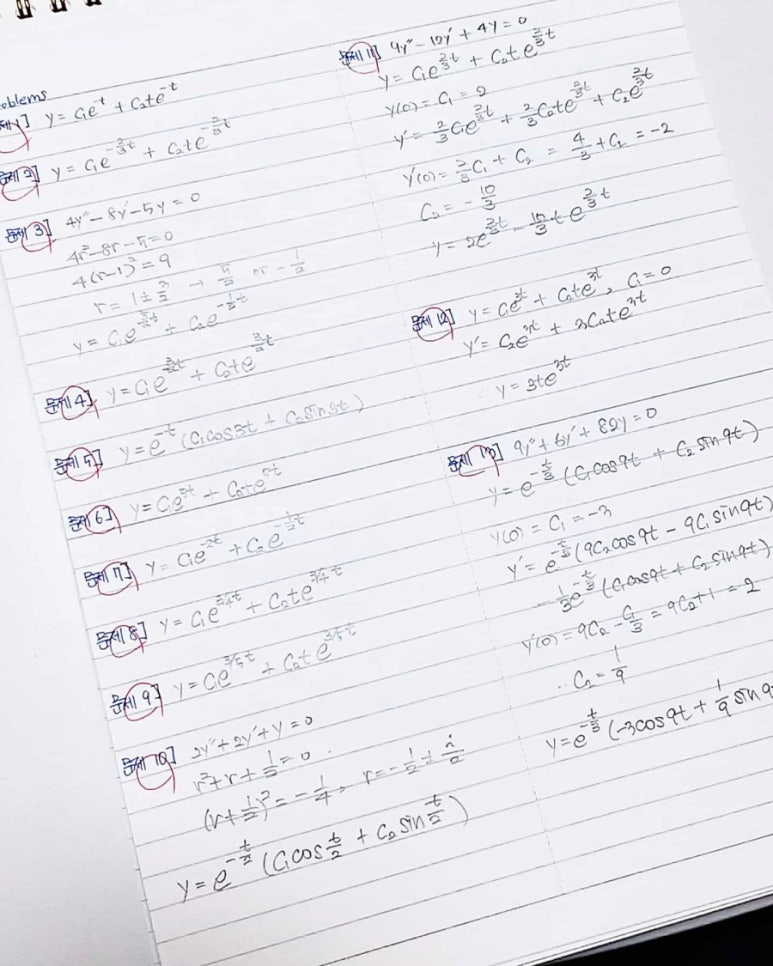 oblems
문제 1] y = c₁e^{-t} + c₂te^{-t}
문제 2] y = c₁e^{-\frac{2}{3}t} + c₂te^{-\frac{2}{3}t}
문제 3] 4y″ - 8y′ - 5y = 0
4r² - 8r - 5 = 0
4(r-1)² = 9
r = 1 ± \frac{3}{2} → \frac{5}{2} or -\frac{1}{2}
y = c₁e^{\frac{5}{2}t} + c₂e^{-\frac{1}{2}t}
문제 4] y = c₁e^{-\frac{3}{2}t} + c₂te^{-\frac{3}{2}t}
문제 5] y = e^{-t}(c₁cos3t + c₂sin3t)
문제 6] y = c₁e^{3t} + c₂te^{3t}
문제 7] y = c₁e^{-2t} + c₂e^{-\frac{1}{2}t}
문제 8] y = c₁e^{3/4t} + c₂te^{3/4t}
문제 9] y = c₁e^{3/5t} + c₂te^{3/5t}
문제 10] 2y″ + 2y′ + y = 0
r² + r + \frac{1}{2} = 0.
(r+\frac{1}{2})² = -\frac{1}{4}, r = -\frac{1}{2} ± \frac{i}{2}
y = e^{-\frac{t}{2}}(c₁cos\frac{t}{2} + c₂sin\frac{t}{2})
문제 11] 9y″ - 12y′ + 4y = 0
y = c₁e^{\frac{2}{3}t} + c₂te^{\frac{2}{3}t}
y(0) = c₁ = 2
y′ = \frac{2}{3}c₁e^{\frac{2}{3}t} + \frac{2}{3}c₂te^{\frac{2}{3}t} + c₂e^{\frac{2}{3}t}
y′(0) = \frac{2}{3}c₁ + c₂ = \frac{4}{3} + c₂ = -2
c₂ = -\frac{10}{3}
y = 2e^{\frac{2}{3}t} - \frac{10}{3}te^{\frac{2}{3}t}
문제 12] y = c₁e^{3t} + c₂te^{3t}, c₁ = 0
y′ = c₂e^{3t} + 3c₂te^{3t}
y = 3te^{3t}
문제 13] 9y″ + 6y′ + 82y = 0
y = e^{-\frac{t}{3}}(c₁cos9t + c₂sin9t)
y(0) = c₁ = -3
y′ = e^{-\frac{t}{3}}(9c₂cos9t - 9c₁sin9t)
-\frac{1}{3}e^{-\frac{t}{3}}(c₁cos9t + c₂sin9t)
y′(0) = 9c₂ - \frac{c₁}{3} = 9c₂ + 1 = 2
∴ c₂ = \frac{1}{9}
y = e^{-\frac{t}{3}}(-3cos9t + \frac{1}{9}sin9